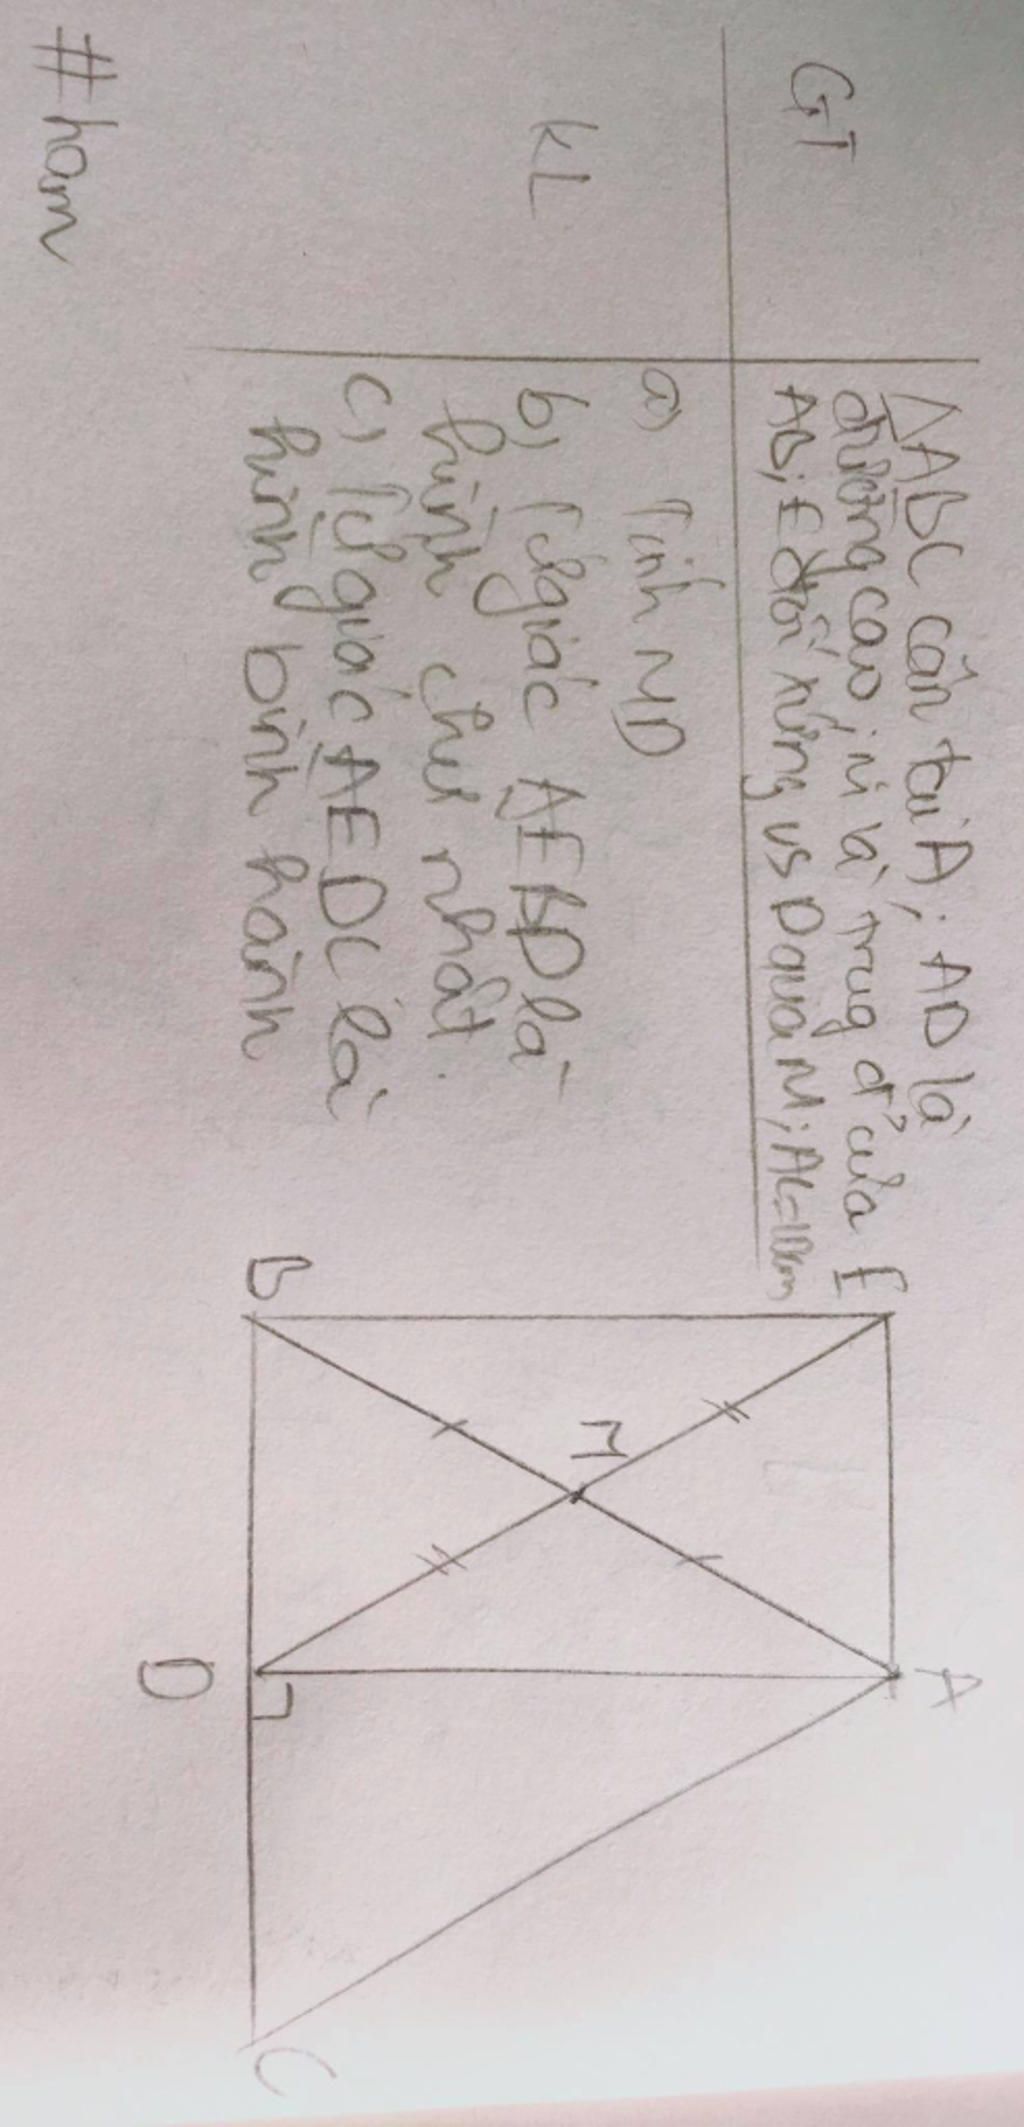 GT
ΔABC cân tại A; AD là
đường cao; M là trug đ' của
AB; E đối xứng vs D qua M; AC=10cm
KL
a) Tính MD
b) Tứ giác AEBD là
hình chữ nhật.
c) Tứ giác AEDC là
hình bình hành
#ham
E
A
M
B
D
C